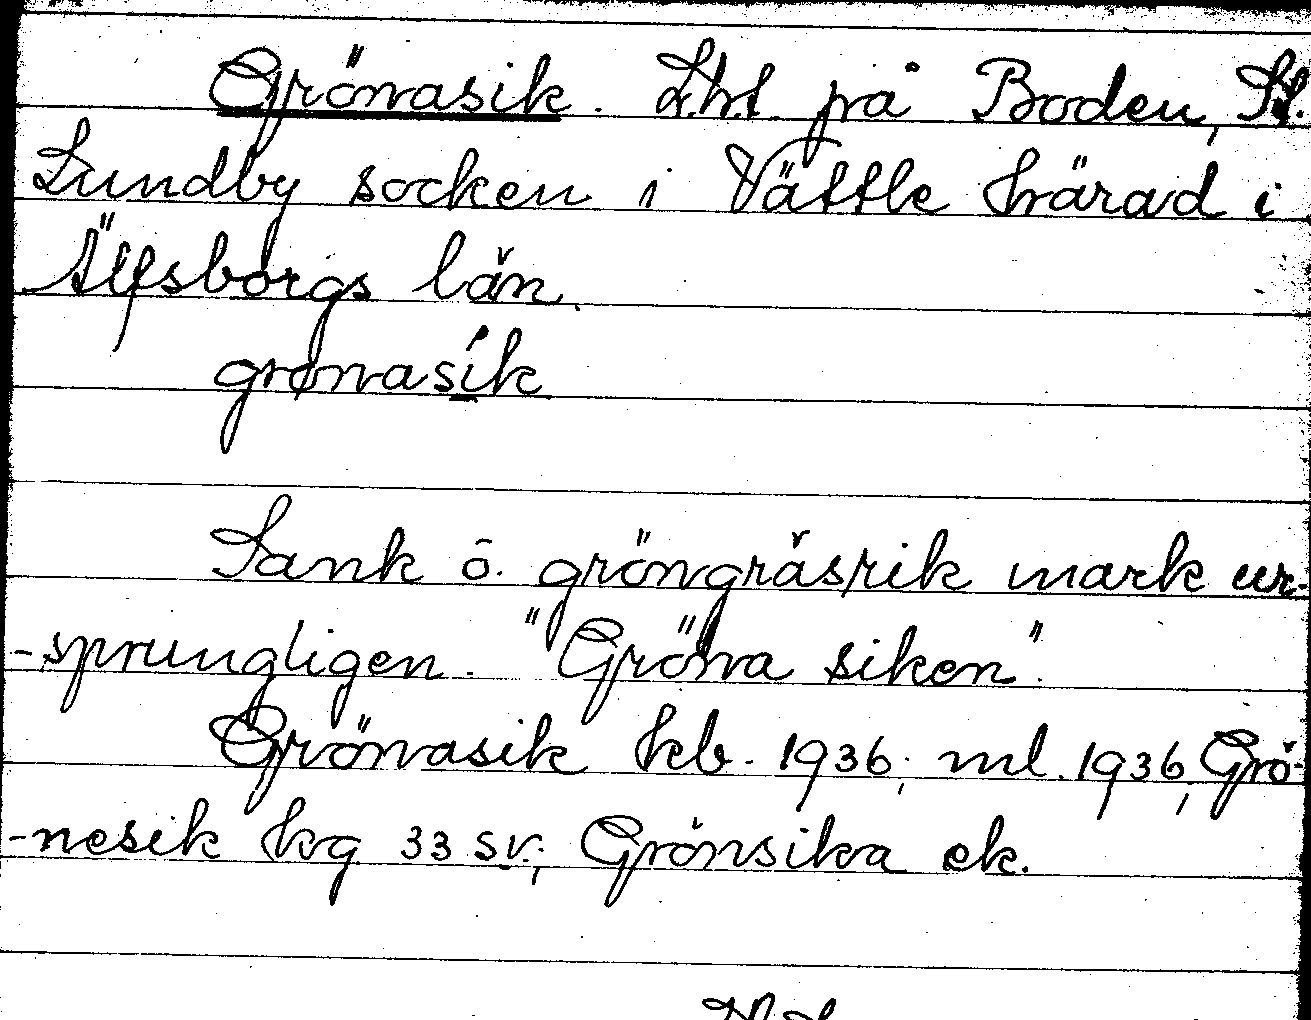 Grönasik. Lht på Boden, St.
Lundby socken i Vättle härad i
Älfsborgs län.
grønasík
Sank ö. gröngräsrik mark ur-
-sprungligen. "Gröna siken".
Grönasik kb. 1936; ml. 1936, Grö-
-nesik kg 33 sv.; Grönsika ek.